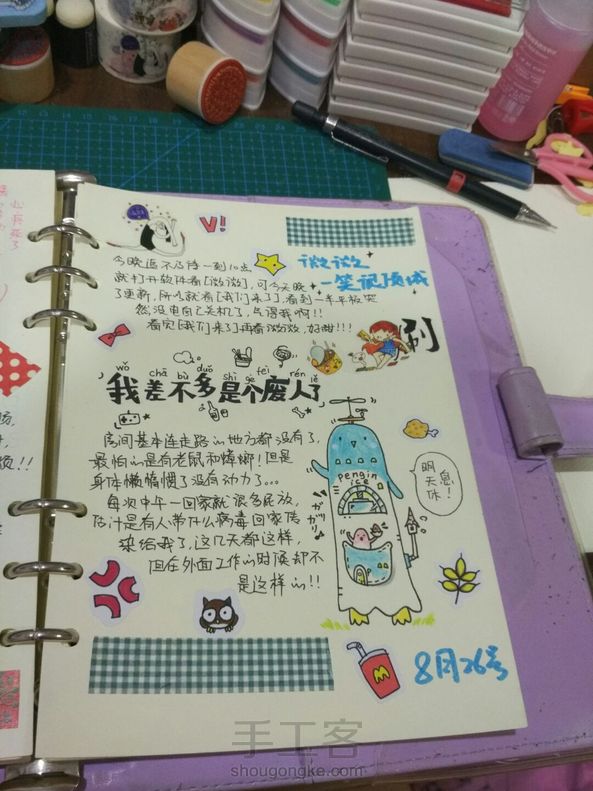 V!
微微
一笔记顷城
今晚迫不及待一到10点
就打开软件看[微微],可今天晚
了更新,所以就看[我们来了],看到一半平板突
然没电自己关机了,气得我啊!!
看完[我们来了]再看微微,好甜!!!
刷
wǒ chā bù duō shì gè fèi rén le
我差不多是个废人了
房间基本连走路的地方都没有了,
最怕的是有老鼠和蟑螂!但是
身体懒惰惯了没有动力了...
每次中午一回家就很多屁放,
估计是有人带什么病毒回家传
染给我了,这几天都这样,
但在外面工作的时候却不
是这样的!!
pengin
ice
ガリガリ
明天休息!
M
8月26号
手工客
shougongke.com